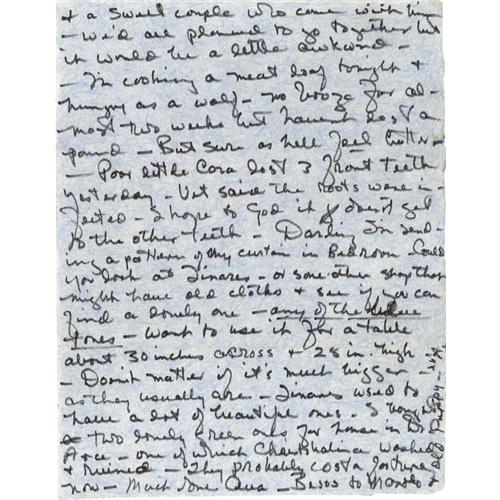 & a sweet couple who came with him
- we'd all planned to go together but
it would be a little awkward -
- I'm cooking a meat loaf tonight &
hungry as a wolf - no booze for al-
most two weeks but havent lost a
pound - But sure as hell feel better -
- Poor little Cora lost 3 front teeth
yesterday - Vet said the roots were in-
fected - I hope to God it doesn't get
to the other teeth - Darling I'm send-
ing a pattern of my curtain in Bedroom - Could
you look at Linares - or some other shop that
might have old cloths & see if you can
find a lovely one - any of the blue
tones - want to use it for a table
about 30 inches across & 28 in. high
- Doesn't matter if it's much bigger
as they usually are - Linares used to
have a lot of beautiful ones - I bought
two lovely green ones for house in
Arce - one of which washed
& ruined - They probably cost a fortune
now - Much love Ava - Besos to